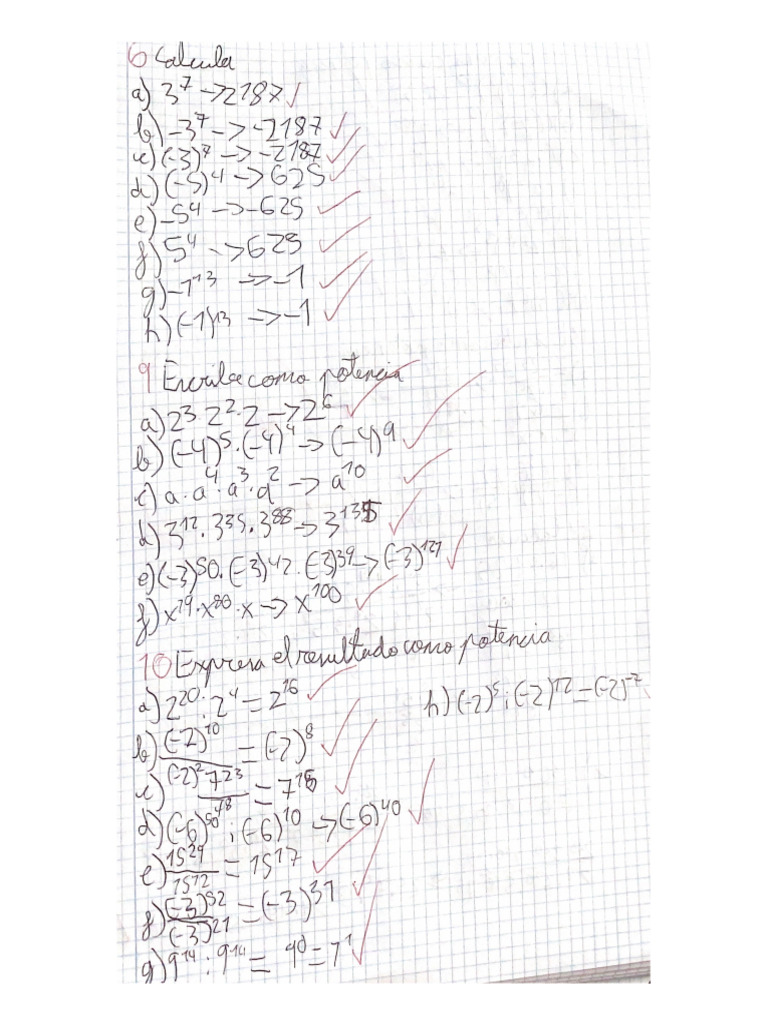 6 Calcula
a) 3⁷ → 2187 ✓
b) -3⁷ → -2187 ✓
c) (-3)⁷ → -2187 ✓
d) (-5)⁴ → 625 ✓
e) -5⁴ → -625 ✓
f) 5⁴ → 625 ✓
g) -1¹³ → -1 ✓
h) (-1)¹³ → -1 ✓
9 Escribe como potencia
a) 2³·2²·2 → 2⁶ ✓
b) (-4)⁵·(-4)⁴ → (-4)⁹ ✓
c) a·a⁴·a³·a² → a¹⁰ ✓
d) 3¹²·3³⁵·3⁸⁸ → 3¹³⁵ ✓
e) (-3)⁵⁰·(-3)⁴²·(-3)³⁹ → (-3)¹³¹ ✓
f) x¹⁹·x⁸⁰·x → x¹⁰⁰ ✓
10 Expresa el resultado como potencia
a) 2²⁰ : 2⁴ = 2¹⁶ ✓
b) (-2)¹⁰ / (-2)² = (-2)⁸ ✓
c) 7²³ / 7⁸ = 7¹⁵ ✓
d) (-6)⁵⁰ : (-6)¹⁰ → (-6)⁴⁰ ✓
e) 15²⁹ / 15¹² = 15¹⁷ ✓
f) (-3)⁵² / (-3)²¹ = (-3)³¹ ✓
g) 9¹⁴ : 9¹⁴ = 9⁰ = 1 ✓
h) (-2)⁵ : (-2)¹² = (-2)⁻⁷